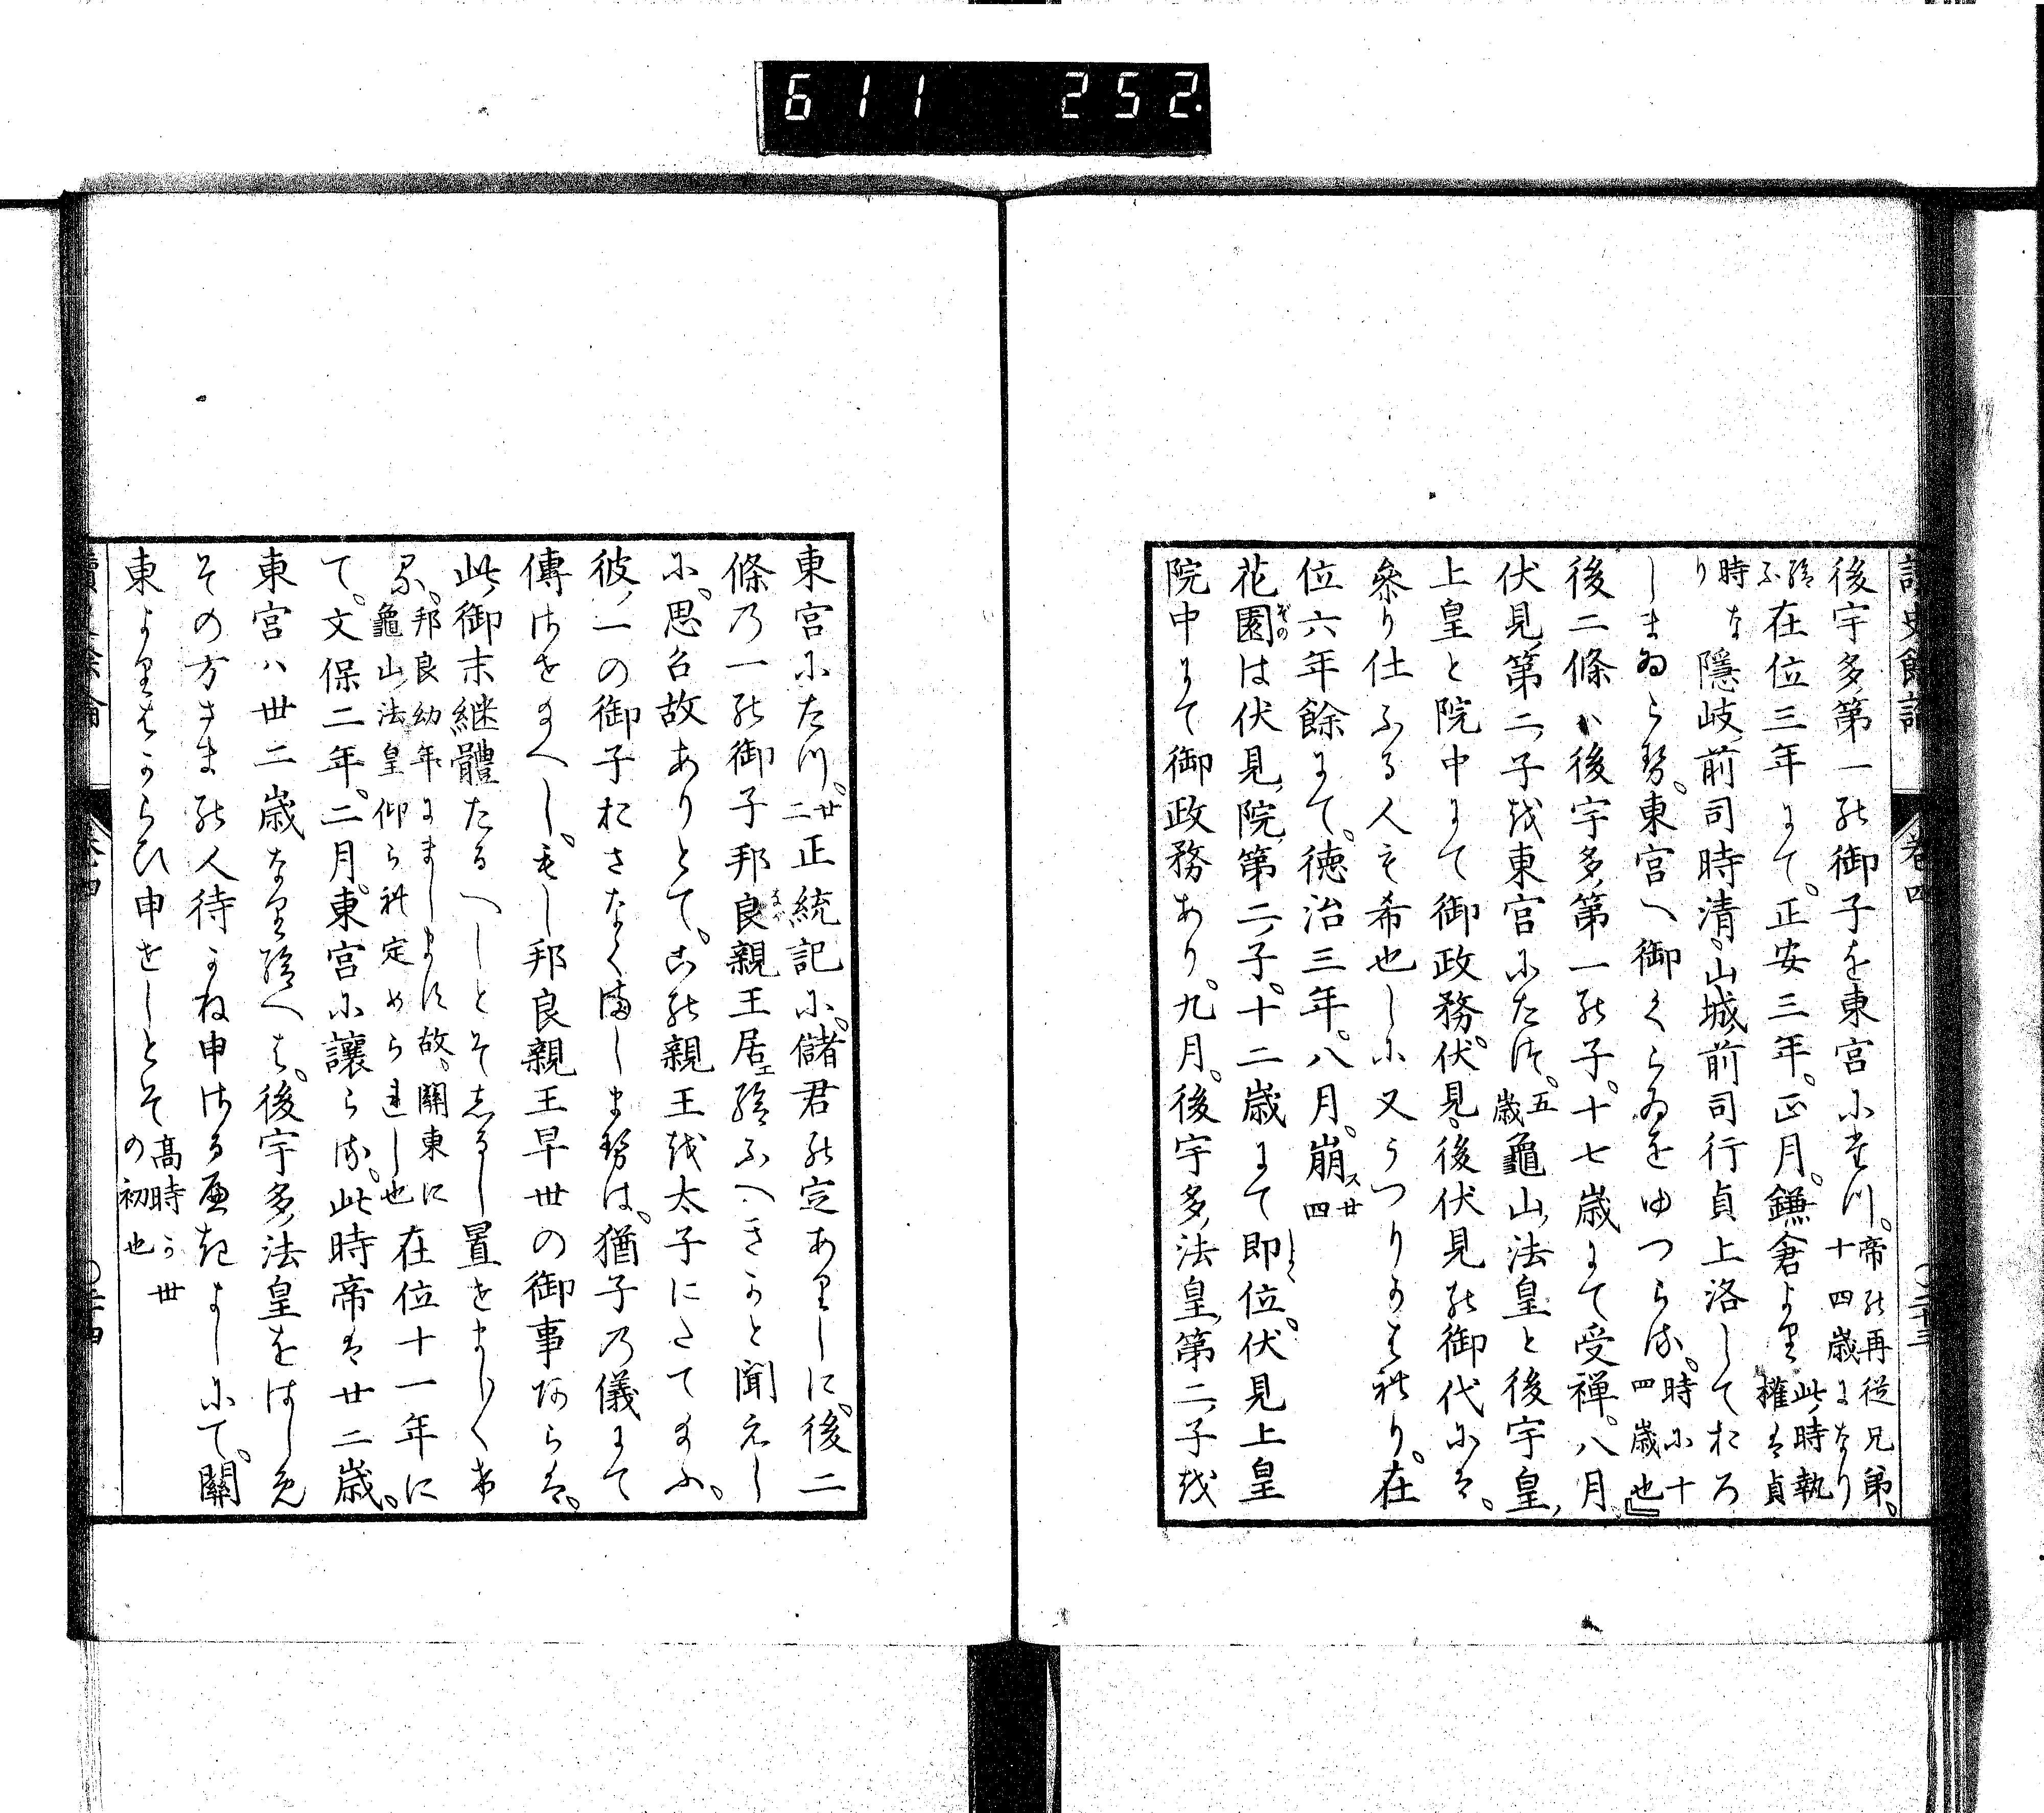 611 252.
讀史餘論 卷四 〇二十三
後宇多第一の御子を東宮に立つ。帝の再從兄弟。十四歳になり
給ふ在位三年にて。正安三年。正月。鎌倉より此時執權は貞
時なり隱岐前司時清。山城前司行貞上洛しておろ
しまゐらせ。東宮へ御くらゐをゆつらる。時に十四歳也
後二條ハ後宇多第一の子。十七歳にて受禅。八月
伏見第二子を東宮にたつ。五歳龜山法皇と後宇皇
上皇と院中にて御政務。伏見。後伏見の御代には。
參り仕ふる人も希也しに又うつりかはれり。在
位六年餘にて。徳治三年。八月。崩ス廿四
花園は伏見院第二子。十二歳にて即位。伏見上皇
院中にて御政務あり。九月。後宇多法皇第二子を
東宮にたつ。廿二正統記に。儲君の定ありしに。後二
條の一の御子邦良親王居給ふへきかと聞えし
に。思召故ありとて。此の親王を太子にたてたまふ。
彼一の御子おさなくましませは。猶子の儀にて
傳はせたまへし。もし邦良親王早世の御事あらは。
此御末繼體たるへしとそしるし置せましましけ
る。邦良幼年にまします故。關東に龜山法皇仰られ定められし也在位十一年に
て。文保二年。二月。東宮に讓らる。此時帝は廿二歳。
東宮ハ卅二歳なり給へは。後宇多法皇をはしめ
その方さまの人待かね申さるる色きよしにて。關
東よりはからひ申せしとそ高時か世の初也
讀史餘論 卷四 〇二十四